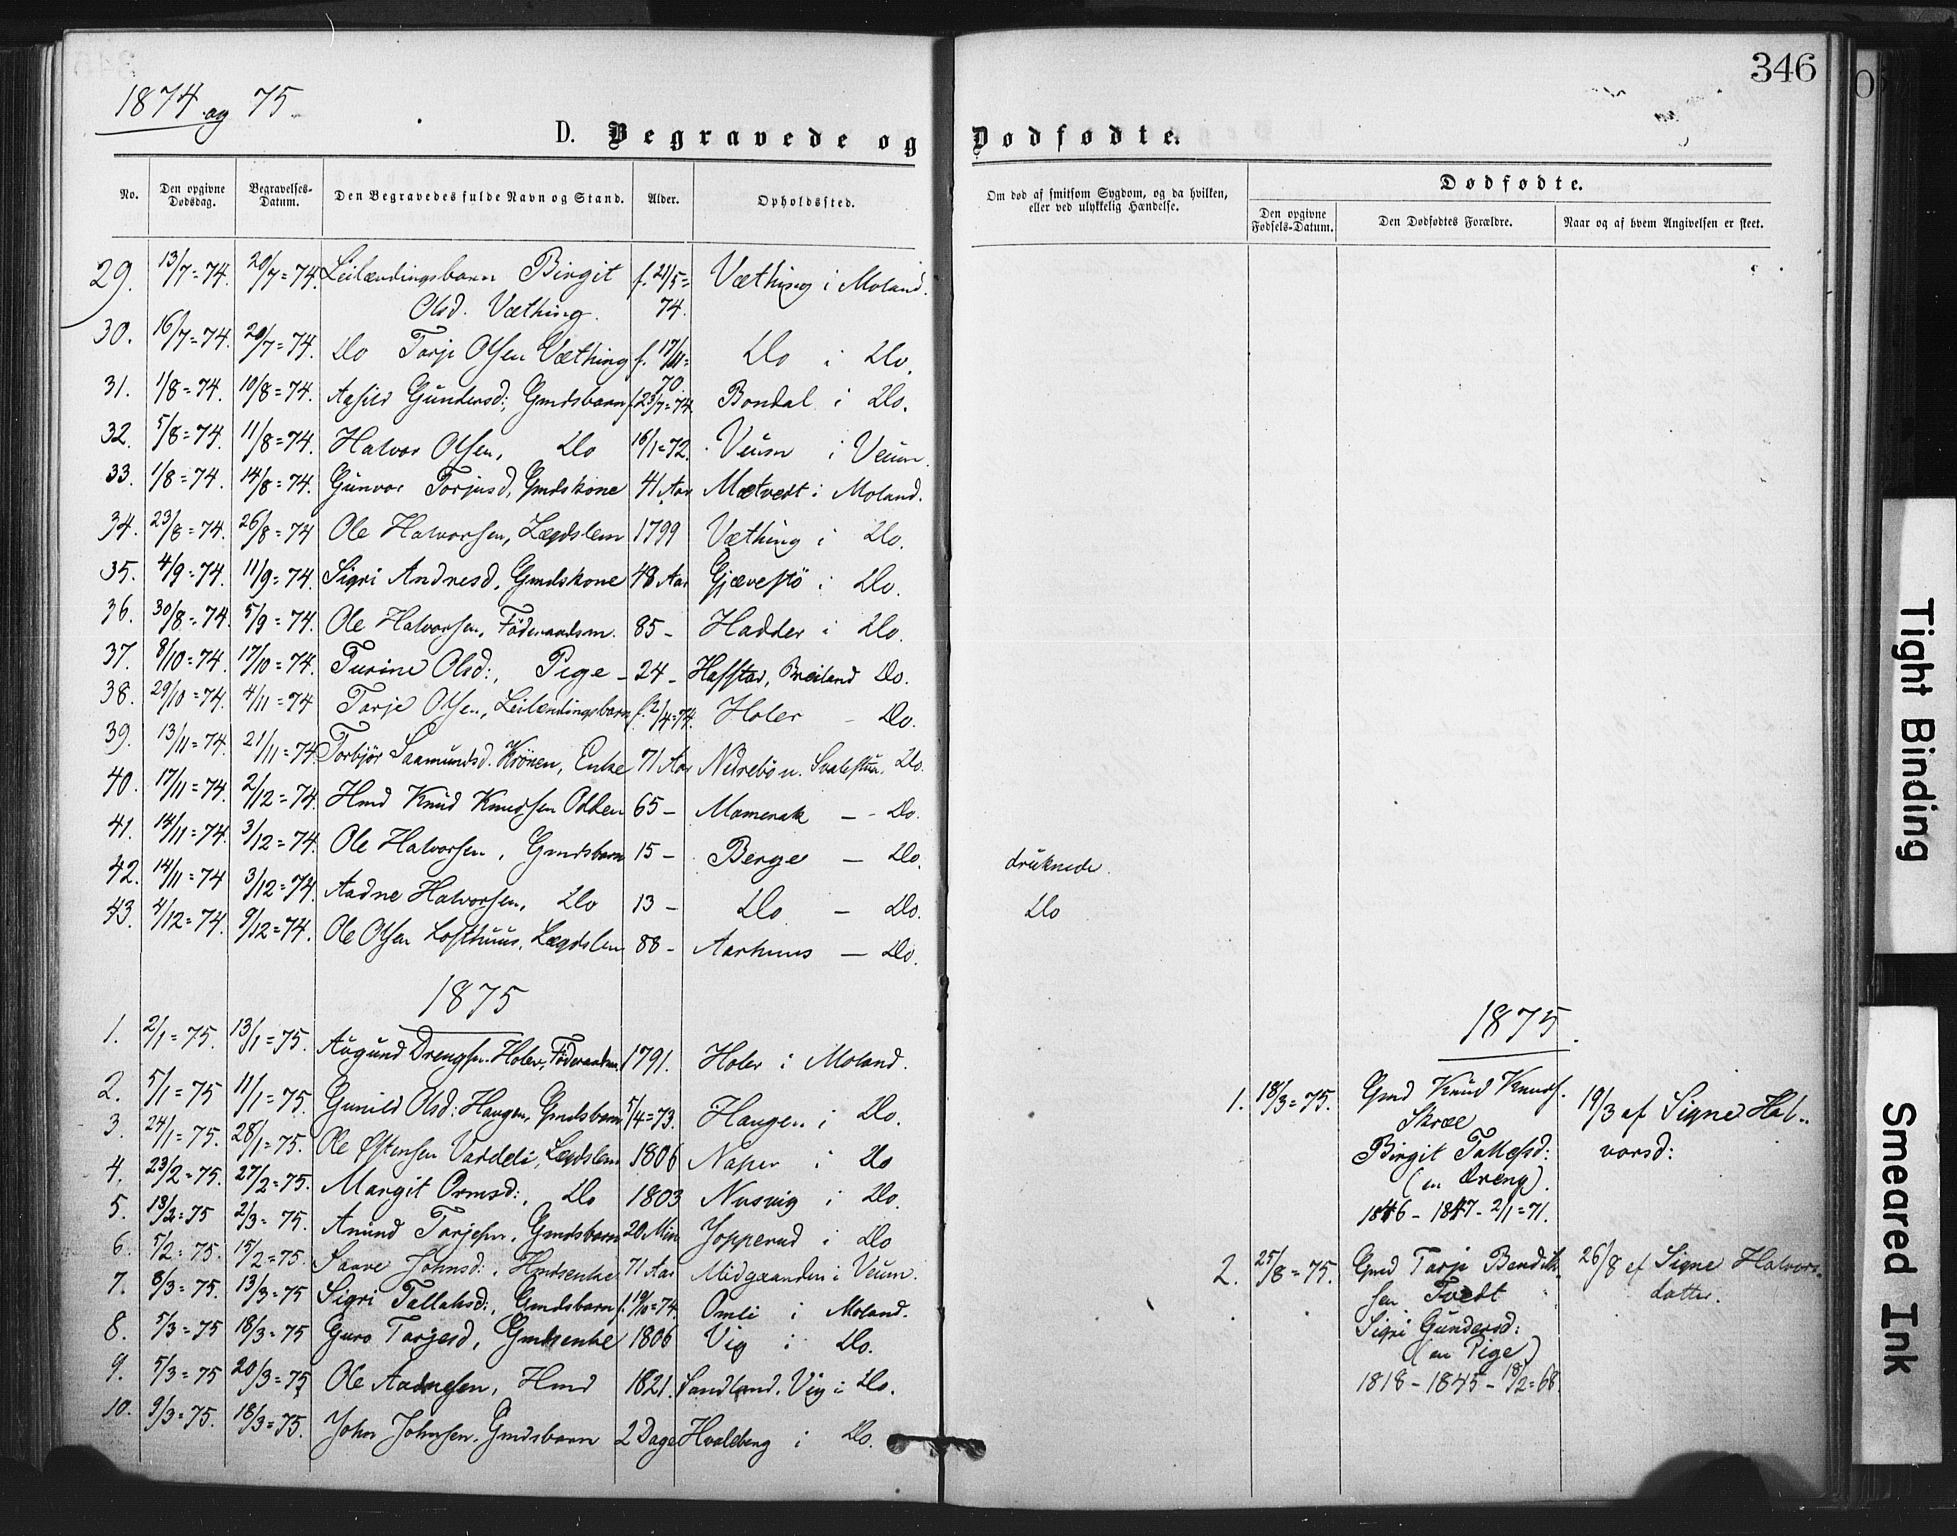 1874 og 75.
346
D. Begravede og Dødfødte.
No.
Den opgivne Dødsdag.
Begravelses-Datum.
Den Begravedes fulde Navn og Stand.
Alder.
Opholdssted.
Om død af smitsom Sygdom, og da hvilken, eller ved ulykkelig Hændelse.
Dødfødte.
Den opgivne Fødsels-Datum.
Den Dødfødtes Forældre.
Naar og af hvem Angivelsen er skeet.
29. 13/7=74. 20/7=74. Leilændingsbarn Birgit f. 21/5= Væthing i Moland.
Olsd. Væthing. 74.
30. 16/7=74. 20/7=74. Do Torje Olsen Væthing f. 17/11= Do i Do.
70.
31. 1/8=74. 10/8=74. Aasild Gundersd:, Gmdsbarn f. 23/7=74 Bondal i Do.
32. 5/8=74. 11/8=74. Halvor Olsen, Do 16/1=72. Veum i Veum.
33. 1/8=74. 14/8=74. Gunvor Torjusd, Gmdskone 41 Aar Mætvedt i Moland.
34. 23/8=74. 26/8=74 Ole Halvorsen, Lægdslem 1799 Væthing i Do.
35. 4/9=74. 11/9=74. Sigri Andresd, Gmdskone 48 Aar Gjævestö i Do.
36. 30/8=74. 5/9=74. Ole Halvorsen, Föderaadsm. 85 - Hadder i Do.
37. 8/10=74. 17/10=74. Turine Olsd:, Pige - 24 - Hafstad, Breiland Do.
38. 29/10=74. 4/11=74 Torje Olsen, Leilændingsbarn f. 2/4=74. Holer - Do.
39. 13/11=74. 21/11=74 Torbjør Saamundsd. Krönen, Enke 71 Aar Nedrebö u. Do.
40. 17/11=74. 2/12=74 Hmd Knud Knudsen Odden 65 - Momrak - - Do.
41. 14/11=74. 3/12=74. Ole Halvorsen, Gmdsbarn 15 - Berge - Do. druknede.
42. 14/11=74 3/12=74. Aadne Halvorsen, Do 13 - Do - Do. Do
43. 4/12=74. 9/12=74. Ole Olsen Lofthuus, Lægdslem 88 - Aarhuus - Do.
1875
1. 2/1=75. 13/1=75. Augund Drengsen Holer, Föderaadsm. 1791. Holer i Moland.
2. 5/1=75 11/1=75. Gunild Olsd: Haugen, Gmdsbarn 5/4=73. Haugen i Do.
3. 24/1=75. 28/1=75. Ole Østensen Vaddeli, Lægdslem 1806 Naper i Do
4. 23/2=75. 27/2=75. Margit Ormsd:, Do 1803 Nusvig i Do.
5. 13/2=75 2/3=75. Anund Torjesen, Gmdsbarn 20 Min Jopperud i Do
6. 5/2=75. 15/2=75. Saave Johnsd:, Hmdsenke 71 Aar Midgaarden i Veum.
7. 8/3=75. 13/3=75 Sigri Tallaksd:, Gmdsbarn f. 19/10=74. Omli i Moland.
8. 5/3=75 18/3=75 Guro Torjesd, Gmdsenke 1806 Vig i Do.
9. 5/3=75 20/3=75 Ole Aadnesen, Hmd 1821. Sandland, Vig i Do.
10. 9/3=75. 18/3=75. John Johnsen, Gmdsbarn 2 Dage Hvaleberg i Do.
1875.
1. 18/3=75. Gmd Knud Knuds. 19/3 af Signe Hal-
Skræe vorsd:
Birgit Tallefsd:
(en Dreng).
1846 - 1847 - 2/1=71.
2. 25/8=75. Gmd Torje Bendik- 26/8 af Signe Halvors-
sen Tvedt datter.
Sigri Gundersd:
(en Pige)
1818 - 1845 - 18/2=68.
Tight Binding
Smeared Ink